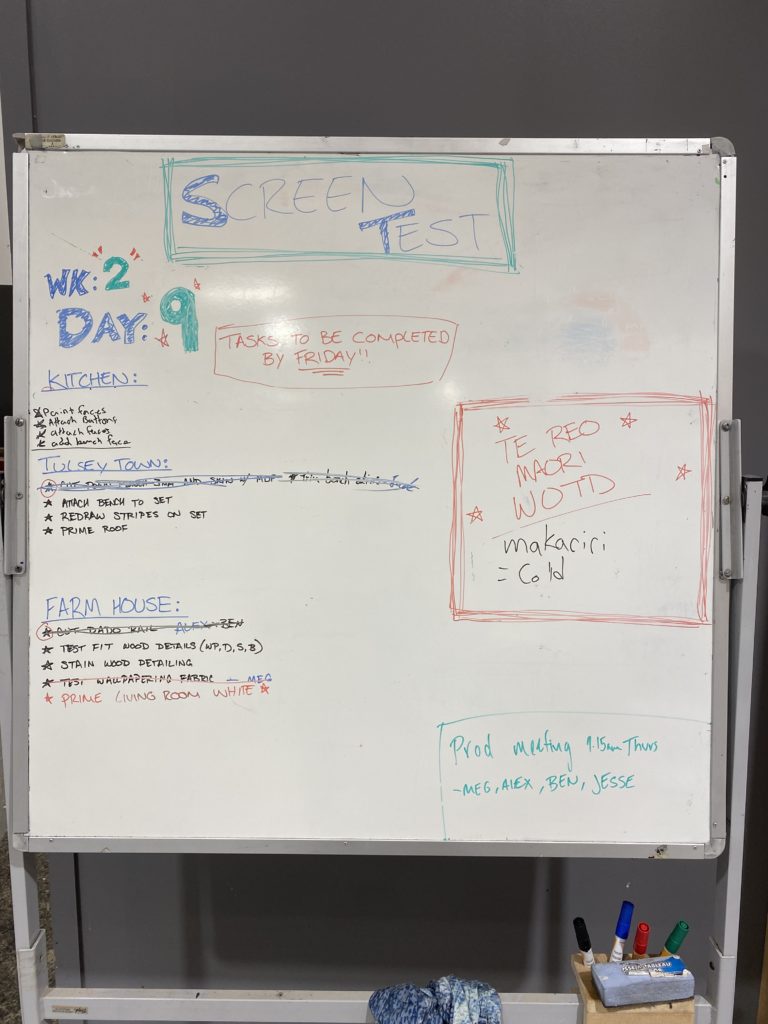 SCREEN
TEST
WK: 2
DAY: 9
TASKS TO BE COMPLETED
BY FRIDAY!!
KITCHEN:
Paint faces
Attach Buttons
attach faces
add bench face
TULSEY TOWN:
AND SKIN W/ MDF
ATTACH BENCH TO SET
REDRAW STRIPES ON SET
PRIME ROOF
FARM HOUSE:
CUT DADO RAIL ALEX + BEN
TEST FIT WOOD DETAILS (WP, D, S, B)
STAIN WOOD DETAILING
TEST WALLPAPERING FABRIC - MEG
PRIME LIVING ROOM WHITE
TE REO
MAORI
WOTD
makariri
= Cold
Prod meeting 9.15am Thurs
- MEG, ALEX, BEN, JESSE